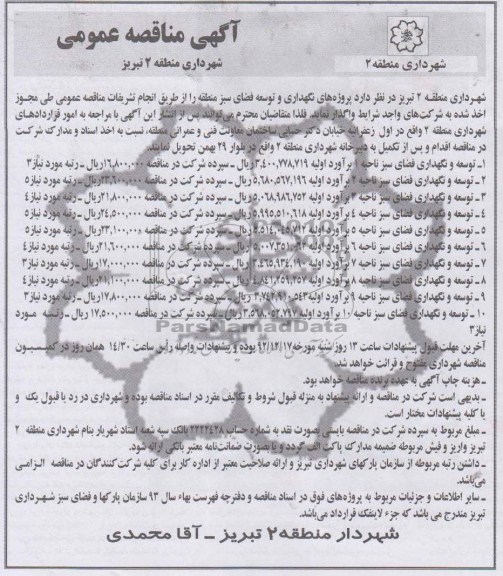 آگهی مناقصه عمومی
شهرداری منطقه ۲ تبریز
شهرداری منطقه۲
شهرداری منطقه ۲ تبریز در نظر دارد پروژه‌های نگهداری و توسعه فضای سبز منطقه را از طریق انجام تشریفات مناقصه عمومی طی مجوز
اخذ شده به شرکت‌های واجد شرایط واگذار نماید. فلذا متقاضیان محترم می‌توانند پس از انتشار این آگهی با مراجعه به امور قراردادهای
شهرداری منطقه ۲ واقع در اول زعفرانیه خیابان دکتر حسابی ساختمان معاونت فنی و عمرانی منطقه، نسبت به اخذ اسناد و مدارک شرکت
در مناقصه اقدام و پس از تکمیل به دبیرخانه شهرداری منطقه ۲ واقع در بلوار ۲۹ بهمن تحویل نمایند.
۱ـ توسعه و نگهداری فضای سبز ناحیه ۱ برآورد اولیه ۳,۴۰۰,۷۷۸,۷۱۹ریال ـ سپرده شرکت در مناقصه ۱۶,۸۰۰,۰۰۰ریال ـ رتبه مورد نیاز۳
۲ـ توسعه و نگهداری فضای سبز ناحیه ۲ برآورد اولیه ۵,۶۸۰,۵۶۷,۱۹۶ ریال ـ سپرده شرکت در مناقصه ۲۳,۶۰۰,۰۰۰ریال ـ رتبه مورد نیاز۵
۳ـ توسعه و نگهداری فضای سبز ناحیه ۳ برآورد اولیه ۵,۰۶۸,۹۸۶,۷۵۲ ریال ـ سپرده شرکت در مناقصه ۲۱,۸۰۰,۰۰۰ریال ـ رتبه مورد نیاز۴
۴ـ توسعه و نگهداری فضای سبز ناحیه ۴ برآورد اولیه ۵,۹۹۵,۵۱۰,۶۱۸ ریال ـ سپرده شرکت در مناقصه ۲۴,۵۰۰,۰۰۰ریال ـ رتبه مورد نیاز۵
۵ـ توسعه و نگهداری فضای سبز ناحیه ۵ برآورد اولیه ۵,۵۱۴,۰۴۵,۷۱۲ ریال ـ سپرده شرکت در مناقصه ۲۳,۱۰۰,۰۰۰ریال ـ رتبه مورد نیاز۵
۶ـ توسعه و نگهداری فضای سبز ناحیه ۶ برآورد اولیه ریال ـ سپرده شرکت در مناقصه ۲۱,۶۰۰,۰۰۰ریال ـ رتبه مورد نیاز۴
۷ـ توسعه و نگهداری فضای سبز ناحیه ۷ برآورد اولیه ریال ـ سپرده شرکت در مناقصه ۱۷,۰۰۰,۰۰۰ریال ـ رتبه مورد نیاز۳
۸ـ توسعه و نگهداری فضای سبز ناحیه ۸ برآورد اولیه ریال ـ سپرده شرکت در مناقصه ریال ـ رتبه مورد نیاز۴
۹ـ توسعه و نگهداری فضای سبز ناحیه ۹ برآورد اولیه ریال ـ سپرده شرکت در مناقصه ۱۷,۸۰۰,۰۰۰ریال ـ رتبه مورد نیاز۳
۱۰ ـ توسعه و نگهداری فضای سبز ناحیه ۱۰ برآورد اولیه ۳,۵۶۸,۰۵۲,۷۹۷ ریال ـ سپرده شرکت در مناقصه ۱۷,۵۰۰,۰۰۰ ریال ـ رتبه مورد نیاز
۳
ParsNamadData
آخرین مهلت قبول پیشنهادات ساعت ۱۳ روز شنبه مورخه ۹۲/۱۲/۱۷ بوده و پیشنهادات واصله راس ساعت ۱۴/۳۰ همان روز در کمیسیون
مناقصه شهرداری مفتوح و قرائت خواهد شد.
ـ هزینه چاپ آگهی به عهده برنده مناقصه خواهد بود.
ـ بدیهی است شرکت در مناقصه و ارائه پیشنهاد به منزله قبول شروط و تکالیف مقرر در اسناد مناقصه بوده و شهرداری در رد یا قبول یک و
یا کلیه پیشنهادات مختار است.
ـ مبلغ مربوط به سپرده شرکت در مناقصه بایستی بصورت نقد به شماره حساب ۲۲۲۲۴۲۸ بانک سپه شعبه استاد شهریار بنام شهرداری منطقه ۲
تبریز واریز و فیش مربوطه ضمیمه مدارک پاکت الف گردد و یا بصورت ضمانت‌نامه معتبر بانکی ارائه شود.
ـ داشتن رتبه مربوطه از سازمان پارکهای شهرداری تبریز و ارائه صلاحیت معتبر از اداره کار برای کلیه شرکت‌کنندگان در مناقصه الزامی
می‌باشد.
ـ سایر اطلاعات و جزئیات مربوط به پروژه‌های فوق در اسناد مناقصه و دفترچه فهرست بهاء سال ۹۳ سازمان پارکها و فضای سبز شهرداری
تبریز مندرج می باشد که جزء لاینفک قرارداد می‌باشد.
شهردار منطقه۲ تبریز ـ آقا محمدی